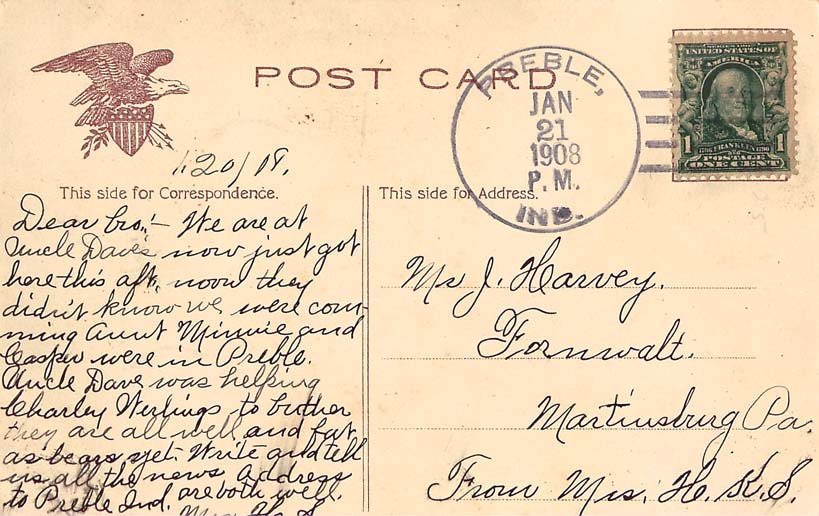 POST CARD
PREBLE,
JAN
21
1908
P.M.
IND.
SERIES 1902
UNITED STATES OF
AMERICA
1 1706 FRANKLIN 1790 1
POSTAGE
ONE CENT
1/20/08.
This side for Correspondence.
This side for Address.
Dear Bro.:- We are at
Uncle Dave's now just got
here this aft. noon they
didn't know we were com-
ming Aunt Minnie and
Casper were in Preble.
Uncle Dave was helping
Charley Werlings to buther
they are all well and fat
as bears yet. Write and tell
us all the news Address
to Preble Ind. are both well.
Mr J. Harvey.
Fornwalt.
Martinsburg Pa.
From Mrs. H. K. S.